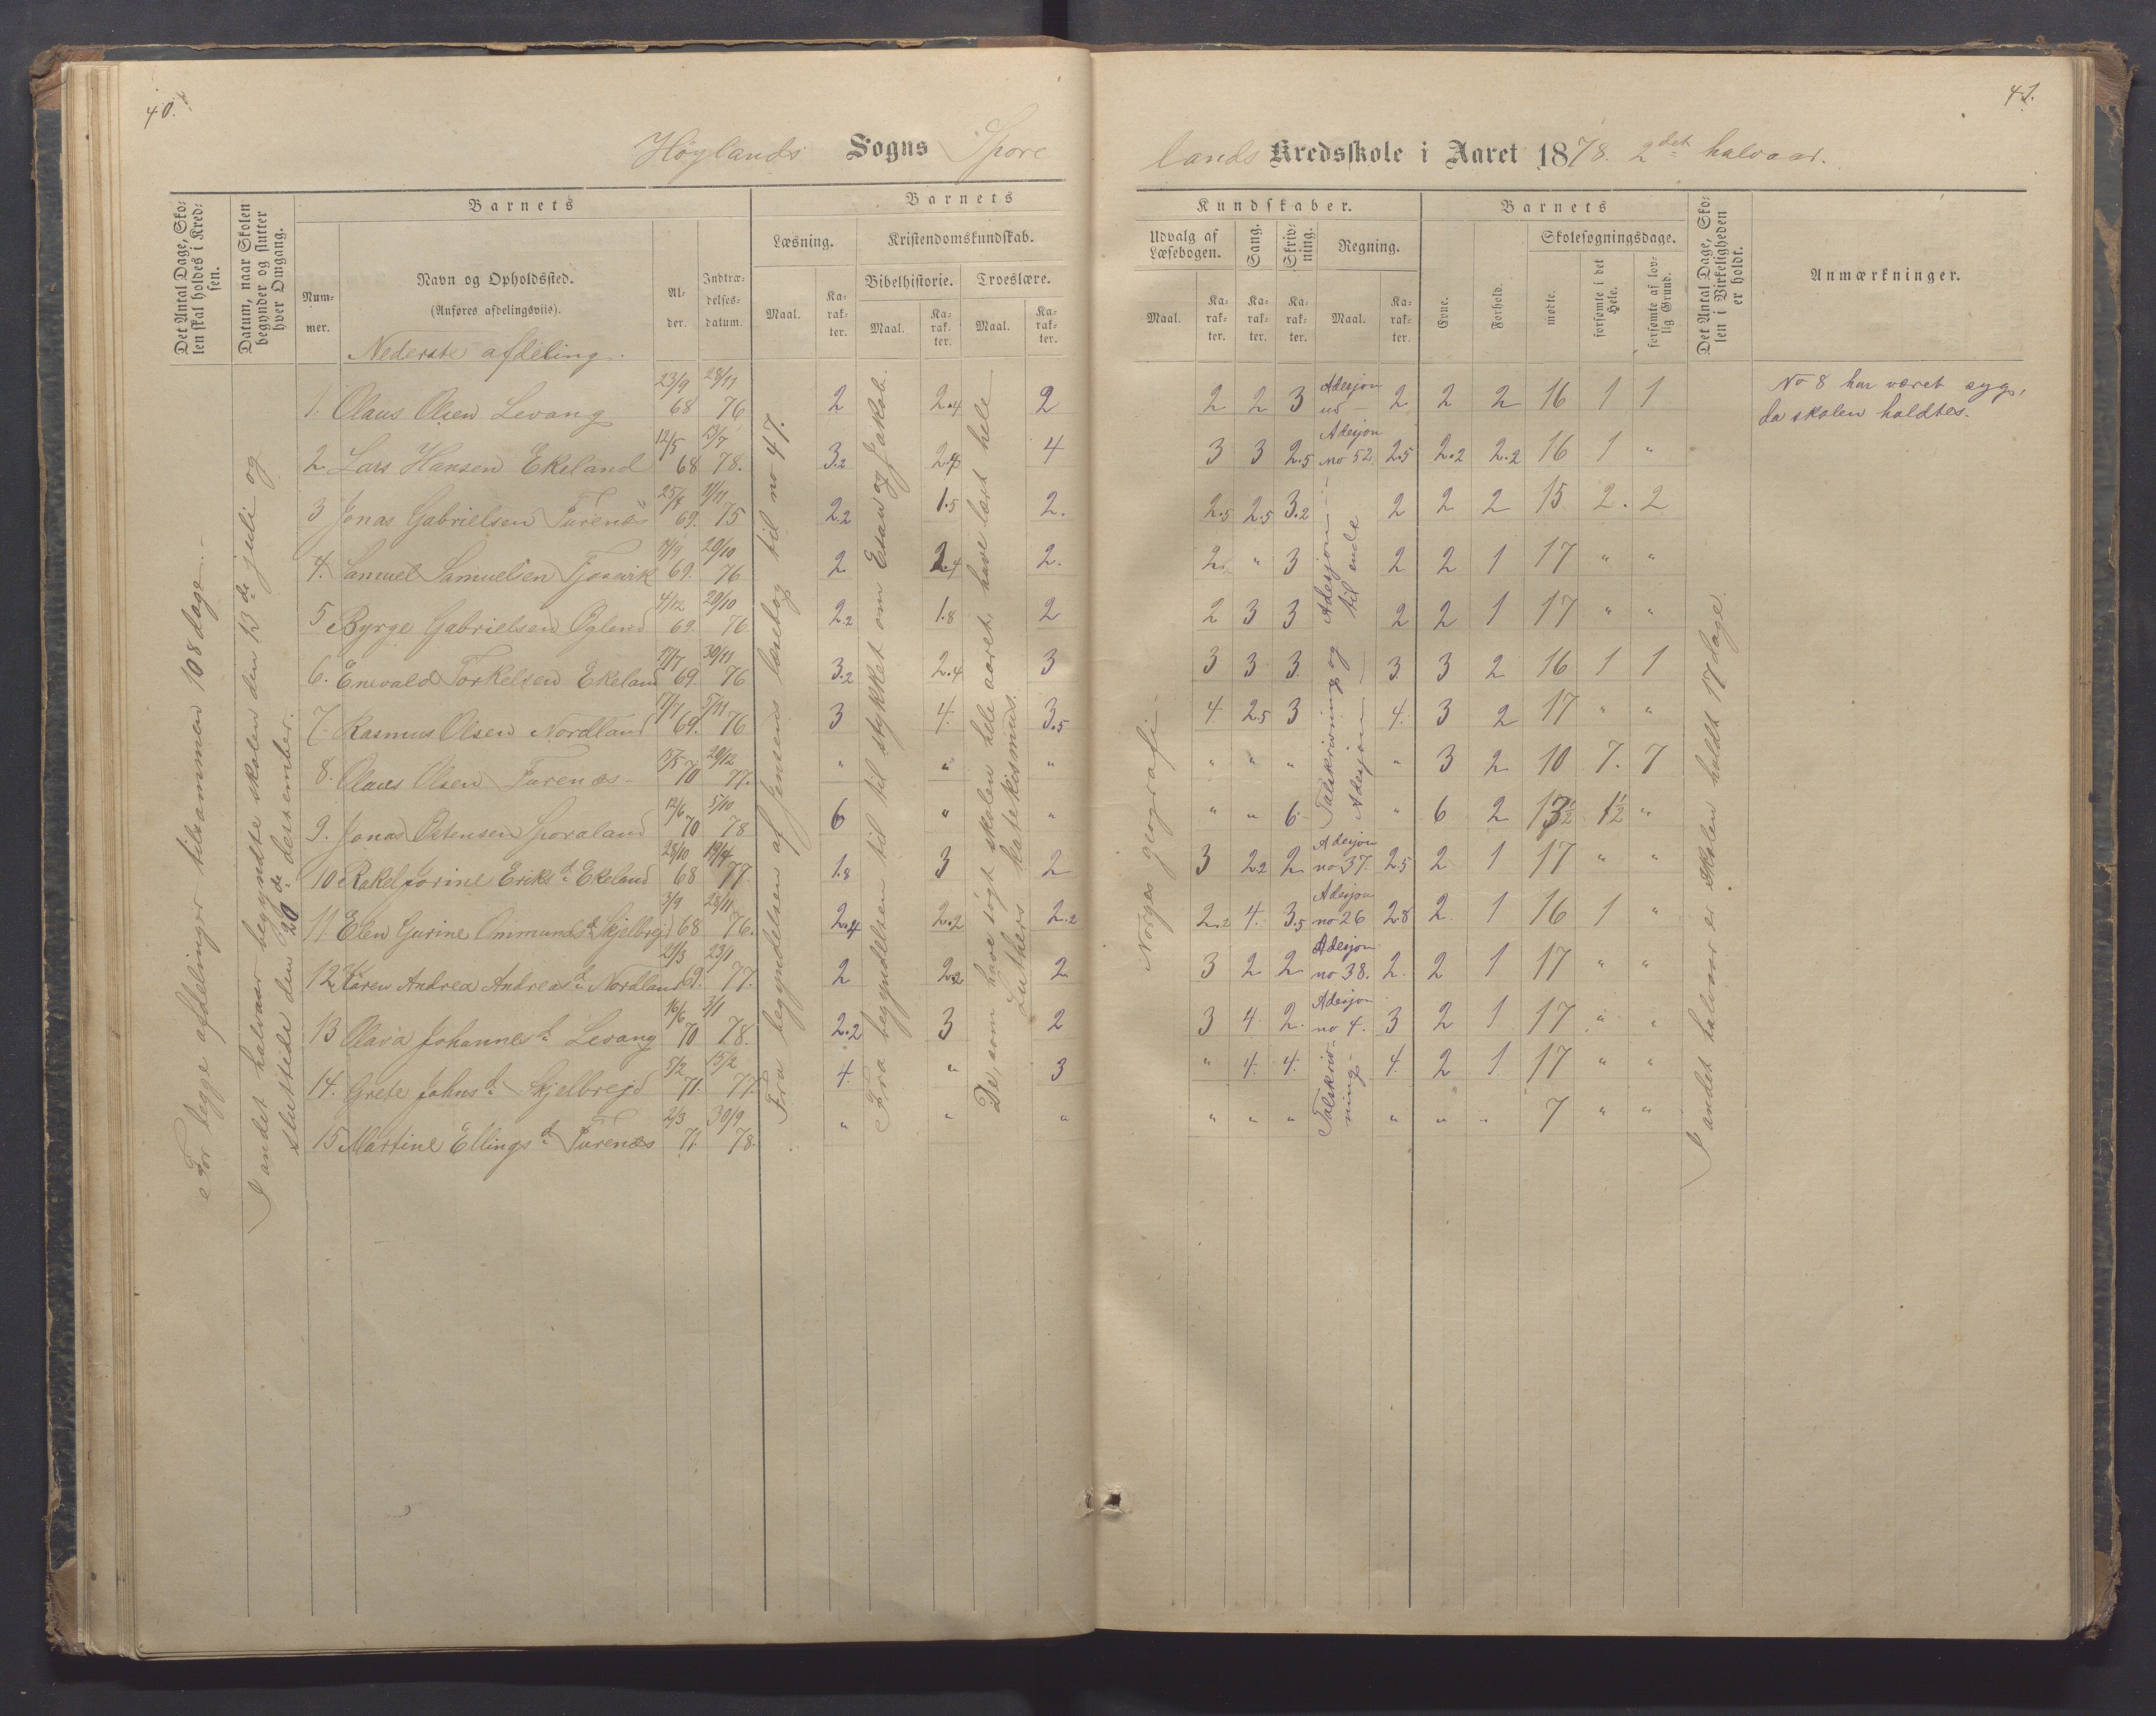 40.
41.
Høylands Sogns Spore
lands Kredsskole i Aaret 1878. 2det halvaar.
Det Antal Dage, Sko-
len skal holdes i Kred-
sen.
Datum, naar Skolen
begynder og slutter
hver Omgang.
Barnets
Num-
mer.
Navn og Opholdssted.
(Anføres afdelingsviis).
Al-
der.
Indtræ-
delses-
datum.
Barnets
Læsning.
Maal.
Ka-
rak-
ter.
Kristendomskundskab.
Bibelhistorie.
Maal.
Ka-
rak-
ter.
Troeslære.
Maal.
Ka-
rak-
ter.
Kundskaber.
Udvalg af
Læsebogen.
Maal.
Ka-
rak-
ter.
Sang.
Ka-
rak-
ter.
Skriv-
ning.
Ka-
rak-
ter.
Regning.
Maal.
Ka-
rak-
ter.
Barnets
Evne.
Forhold.
Skolesøgningsdage.
mødte.
forsømte i det
Hele.
forsømte af lov-
lig Grund.
Det Antal Dage, Sko-
len i Virkeligheden
er holdt.
Anmærkninger.
Nederste afdeling.
For begge afdelinger tilsammen 108 dage.
I andet halvaar begyndte skolen den 13de juli og
sluttede den 20de desember.
Fra begyndelsen af Jensens læsebog til no 47.
Fra begyndelsen til stykket om Esau og Jakob.
De, som have søgt skolen hele aaret, have læst hele
Luthers katekismus.
Norges geografi.
I andet halvaar er skolen holdt 17 dage.
1. Olaus Olsen Levang 23/9 68 28/11 76 2 2.4 2 2 2 3 Adesjon ud 2 2 2 16 1 1
No 8 har været syg,
da skolen holdtes.
2. Lars Hansen Ekeland 12/5 68 13/7 78. 3.2 2.4 4 3 3 2.5 Adesjon no 52. 2.5 2.2 2.2 16 1 "
3 Jonas Gabrielsen Furenæs 25/8 69. 1/11 75 2.2 1.5 2. 2.5 2.5 3.2 2 2 2 15 2. 2
Adesjon
til ende
4. Samuel Samuelsen Tjosevik 69. 20/10 76 2 2.4 2. 2. " 3 2 2 1 17 " "
5 Byrge Gabrielsen Oglend 4/12 69. 20/10 76 2.2 1.8 2 2 3 3 2 2 1 17 " "
6. Enevald Torkelsen Ekeland 17/7 69. 30/11 76 3.2 2.4 3 3 3 3. 3. 3 2 16 1 1
Talskrivning og
Adesjon
7 Rasmus Olsen Nordland 69. 5/11 76 3 4. 3.5 4 2.5 3 4. 3 2 17 " "
8. Olaus Olsen Furenæs 70 20/12 77. " " " " " " " 3 2 10 7. 7
9. Jonas Østensen Sporaland 12/6 70 5/10 78 6 " " " " 6 " 6 2 13½ 1½ "
10 Rakel Jorine Eriksd. Ekeland 28/10 68 77. 1.8 3 2 3 2.2 2 Adesjon no 37. 2.5 2 1 17 " "
11. Elen Gurine Ommundsd. Skjelbrejd 3/9 68 28/11 76. 2.4 2.2 2.2 2.2 4. 3.5 Adesjon no 26 2.8 2. 1 16 1 "
12 Karen Andrea Andreasd. Nordland 69. 23/1 77. 2 2.2 2 3 2 2 Adesjon no 38. 2. 2 1 17 " "
13 Olava Johannesd. Levang 16/6 70 3/1 78. 2.2 3 2 3 4 2. Adesjon no 4. 3 2 1 17 " "
14. Grete Johnsd. Skjelbrejd 5/2 71. 15/2 77. 4. " 3 " 4. 4. 4. 2 1. 17 " "
Talskriv-
ning.
15 Martine Ellingsd. Furenæs 2/3 71. 30/9 78. " " " " " " " " " 7 " "